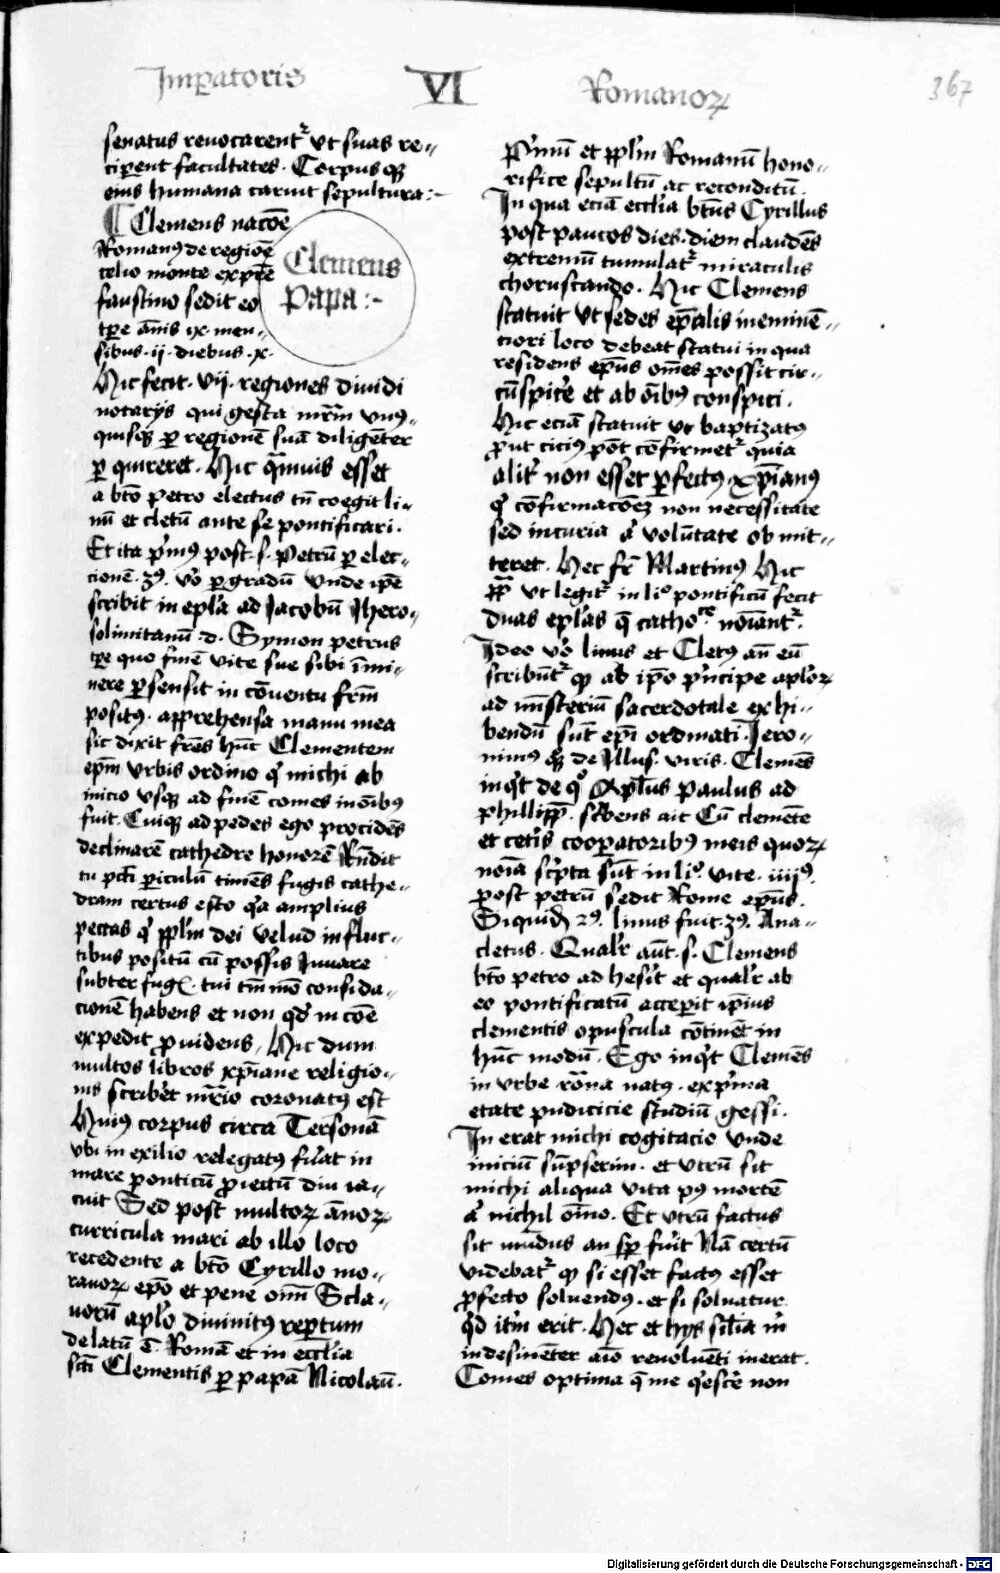 Imꝑatoris VI Romanoꝝ
367
senatus reuocarentr̉ vt suas re-
ciperent facultates. Corpus qꝫ
eius humana caruit sepultura:-
Clemens nacõe
Romanꝰ de regiõe
celio monte ex pr̄e
faustino sedit eo
tp̄re ãnis ix men-
sibus. ij. diebus. x.
Clemens
Papa:-
Hic fecit. vij. regiones diuidi
notarijs qui gesta mr̄m vnus-
quisqꝫ ꝑ regionē suā diligēter
ꝑ quireret. Hic quāuis esset
a bt̄o petro electus tn̄ coegit li-
nū et cletū ante se pontificari.
Et ita prīmꝰ post. s. Petrū ꝑ elec-
cionē. 3ꝰ. vo ꝑ gradū Vnde ip̄e
scribit in epl̄a ad Jacobū Jhero-
solimitanū. d. Symon petrus
tp̄re quo finē vite sue sibi īmi-
nere ꝑsensit in cōuentu frm̄
positꝰ. apprehensa manu mea
sic dixit fr̄es hūc Clementem
ep̄m vrbis ordino qͥ michi ab
inicio vsqꝫ ad finē comes in oībꝰ
fuit. Cuiqꝫ ad pedes ego procidēs
declinarē cathedre honorē Rn̄dit
tu pct̄i ꝑiculū timēs fugis cathe-
dram certus esto qͣ amplius
peccas qͥ ppl̄m dei velud in fluc-
tibus positū cū possis Juuare
subter fug. tui tm̄ mō considā-
cionē habens et non qd̄ in cōe
expedit ꝓuidens, Hic dum
multos libros xp̄iane religio-
nis scriberet mr̄io coronatꝰ est
Huiꝰ corpus circa Tersonā
vbi in exilio relegatꝰ fūat in
mare ponticū ꝓiectū diu ia-
cuit Sed post multoꝝ ānoꝝ
curricula mari ab illo loco
recedente a bt̄o Cyrillo mo-
rauoꝝ ep̄o et pene oīm Scla-
uorū aplo diuinitꝰ reꝑtum
delatū ē. Romā et in eccl̄ia
scī Clementis ꝑ papā Nicolaū.
Prīmū et ppl̄m Romanū hono-
rifice sepultū ac reconditū.
In qua eciā eccl̄ia bt̄us Cyrillus
post paucos dies. diem claudēs
extremū tumulatr̉ miraculis
choruscando. Hic Clemens
statuit vt sedes ep̄alis in eminē-
ciori loco debeat statui in qua
residens ep̄us om̄es possit cir-
cūspice et ab oībꝰ conspici.
Hic eciā statuit vt baptizatꝰ
ꝓut ciciꝰ pōt cōfirmetr̉ quia
alit̉ non esset ꝑfectꝰ xp̄ianꝰ
qͥ cōfirmacōeꝫ non necessitate
sed incuria a᷎ volūtate obmit-
teret. Hec fr̄ Martinꝰ Hic
pp̄a vt legitr̉ in li͏ͦ pontificū fecit
duas epl̄as que cathoᶜᵉ noīantr̉.
Ideo vo linus et Cletꝰ an̄ eū
scribūtr̉ qꝫ ab ip̄o prīncipe aplōꝝ
ad mīsteriū sacerdotale exhi-
bendū sūt ep̄i ordinati. Jero-
nimꝰ qꝫ de Illus. viris. Clemēs
inqͥt de qͦ Apl̄us paulus ad
phillipp̄. scͥbens ait Cū clemēte
et cetīs cooperatoribꝰ meis quoꝝ
noīa scrīpta sūt in liͦ. vite. iiijꝰ.
post petrū sedit Rome ep̄us.
Siquid̄ 2ꝰ. linus fuit. 3ꝰ. Ana-
cletus. Qualr̄ aūt. s. Clemens
bt̄o petro adhesit et qualr̄ ab
eo pontificatū acceperit ip̄ius
clementis opuscula cōtinēt in
hūc modū. Ego inqͥt Clemēs
in vrbe rōna natꝰ. ex prīma
etate pudicicie studiū gessi.
In erat michi cogitacio vnde
iniciū sūpserim. et vtrū sit
michi aliqua vita pꝰ mortē
a᷎ nichil oīno. Et vtrū factus
sit mūdus an sp̄ fuit Nā certū
videbatr̉ qꝫ si esset factꝰ esset
ꝓfecto soluendꝰ. et si soluatur
qͥd itm̄ erit. Hec et hijs sil̄ia m̄
indesinēter aīo reuoluēti inerat.
Comes optima que me qͥescere non
Digitalisierung gefördert durch die Deutsche Forschungsgemeinschaft - DFG